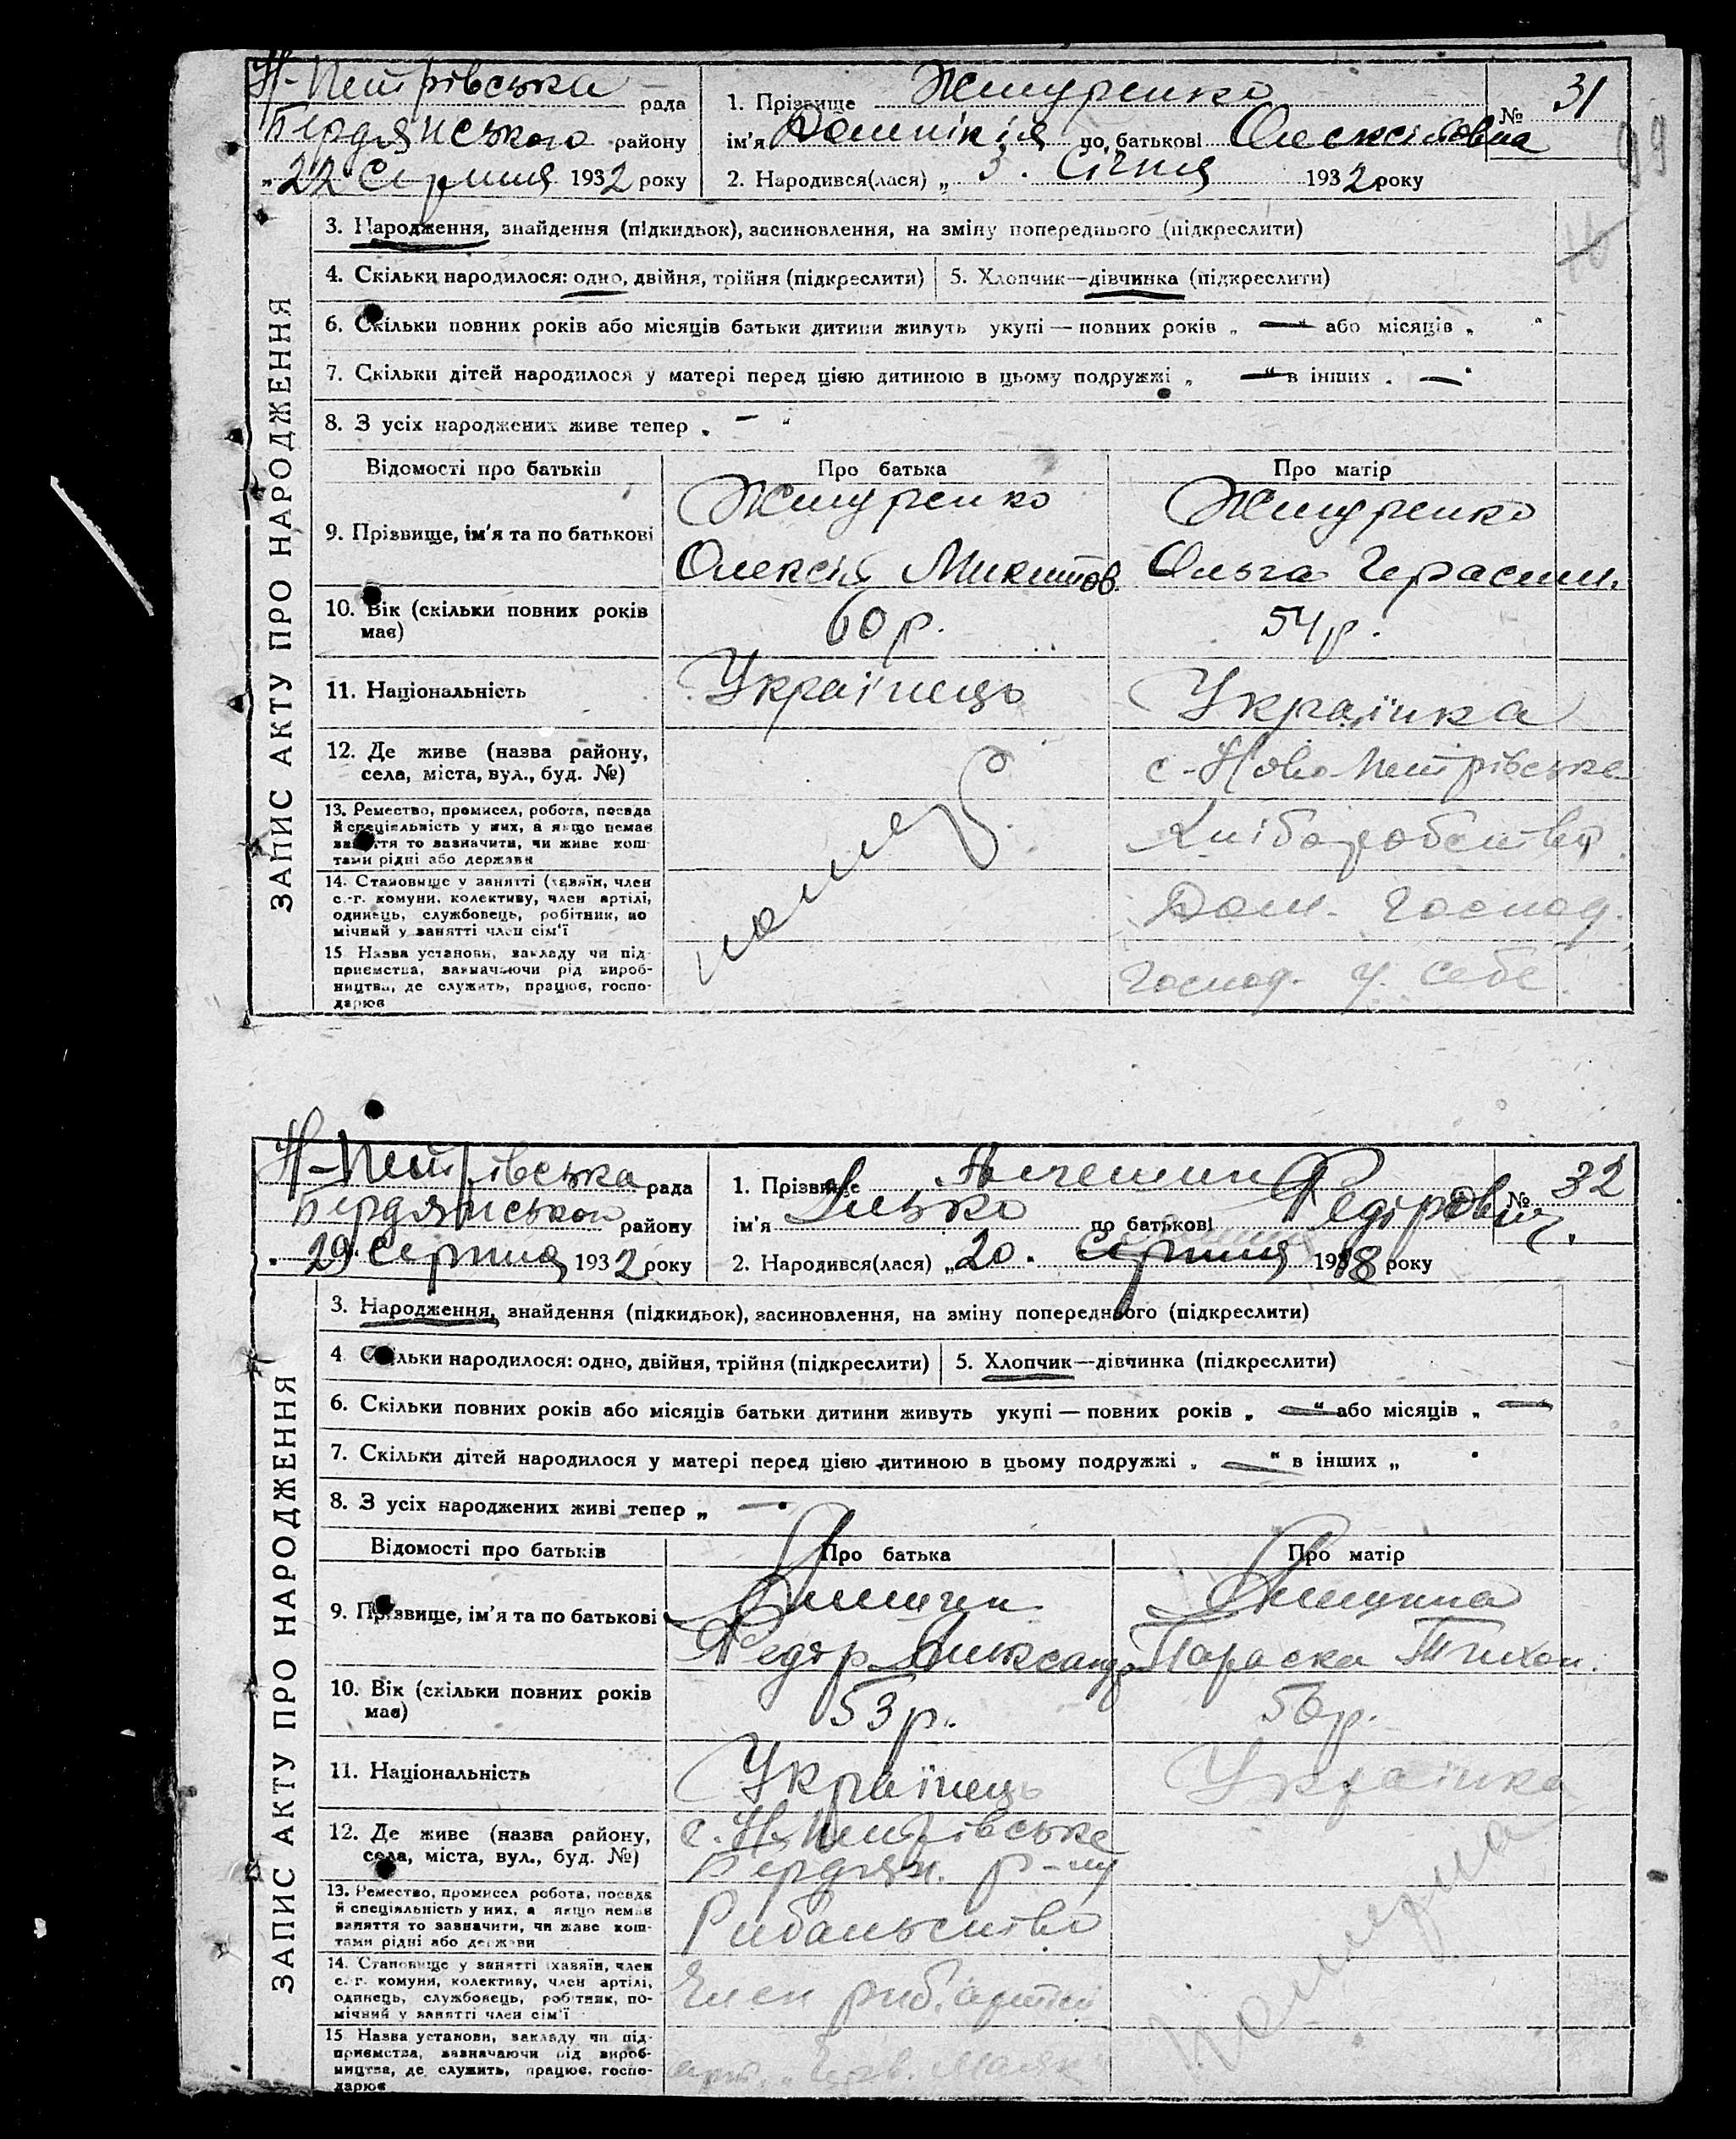 Н-Петрівська рада
Бердянського району
„22" Серпня 1932 року
1. Прізвище Жмуренко
ім'я Домникія по батькові Олексіївна
№ 31
99
2. Народився(лася) „ 3. Січня 1932 року
ЗАПИС АКТУ ПРО НАРОДЖЕННЯ
3. Народження, знайдення (підкидьок), засиновлення, на зміну попереднього (підкреслити)
4. Скільки народилося: одно, двійня, трійня (підкреслити) 5. Хлопчик—дівчинка (підкреслити)
6. Скільки повних років або місяців батьки дитини живуть укупі — повних років „ — “ або місяців „ “
7. Скільки дітей народилося у матері перед цією дитиною в цьому подружжі „ — “ в інших „ — “
8. З усіх народжених живе тепер „ — “
Відомості про батьків Про батька Про матір
9. Прізвище, ім'я та по батькові
Жмуренко Жмуренко
Олексій Микитов. Ольга Герасим.
10. Вік (скільки повних років має) 60 р. 54 р.
11. Національність Українець Українка
12. Де живе (назва району, села, міста, вул., буд. №) с-Ново Петрівське
13. Ремество, промисел, робота, посада й спеціяльність у них, а якщо немає заняття то зазначити, чи живе коштами рідні або держави Хліборобство
14. Становище у занятті (хазяїн, член с.-г. комуни, колективу, член артілі, одинець, службовець, робітник, помічний у занятті член сім'ї Дом. Господ.
15. Назва установи, закладу чи підприємства, зазначаючи рід виробництва, де служить, працює, господарює Господ. у себе
помер
Н-Петрівська рада
Бердянського району
„29" Серпня 1932 року
1. Прізвище
ім'я Ілько по батькові Федорович.
№ 32
2. Народився(лася) „20. Серпня 1918 року
ЗАПИС АКТУ ПРО НАРОДЖЕННЯ
3. Народження, знайдення (підкидьок), засиновлення, на зміну попереднього (підкреслити)
4. Скільки народилося: одно, двійня, трійня (підкреслити) 5. Хлопчик—дівчинка (підкреслити)
6. Скільки повних років або місяців батьки дитини живуть укупі — повних років „ — “ або місяців „ — “
7. Скільки дітей народилося у матері перед цією дитиною в цьому подружжі „ — “ в інших „ “
8. З усіх народжених живі тепер „ — “
Відомості про батьків Про батька Про матір
9. Прізвище, ім'я та по батькові
Федор Александр. Параска Тихон.
10. Вік (скільки повних років має) 53 р. 50 р.
11. Національність Українець Українка
12. Де живе (назва району, села, міста, вул., буд. №) с. Н. Петрівське
Бердян. р-ну
13. Ремество, промисел робота, посада й спеціяльність у них, а якщо немає заняття то зазначити, чи живе коштами рідні або держави Рибальство
14. Становище у занятті (хазяїн, член с.-г. комуни, колективу, член артілі, одинець, службовець, робітник, помічний у занятті член сім'ї Член риб. артілі
15. Назва установи, закладу чи підприємства, зазначаючи рід виробництва, де служить, працює, господарює арт. „Черв. Маяк"
померла